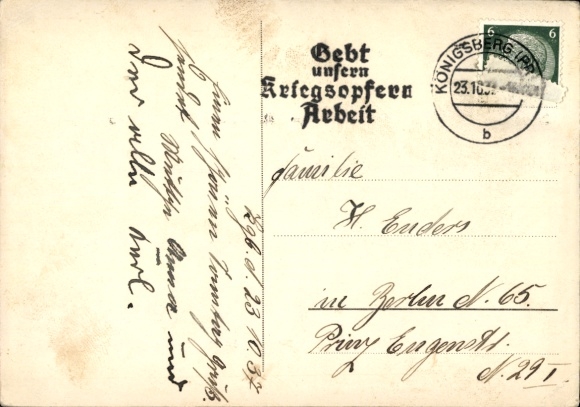 Gebt
unsern
Kriegsopfern
Arbeit
KÖNIGSBERG (PR)
23.10.37
b
6 6
Familie
H. Enders
in Berlin N. 65.
Prinz Eugenstr.
N. 29 I.
Kgb. d. 23.10.37
Einen schönen Sonntag
Anna und
Der alte Karl.